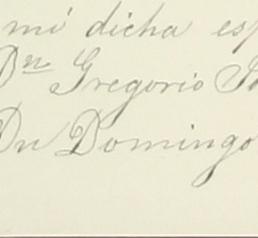 mi dicha esp
Dn Gregorio
Dn Domingo